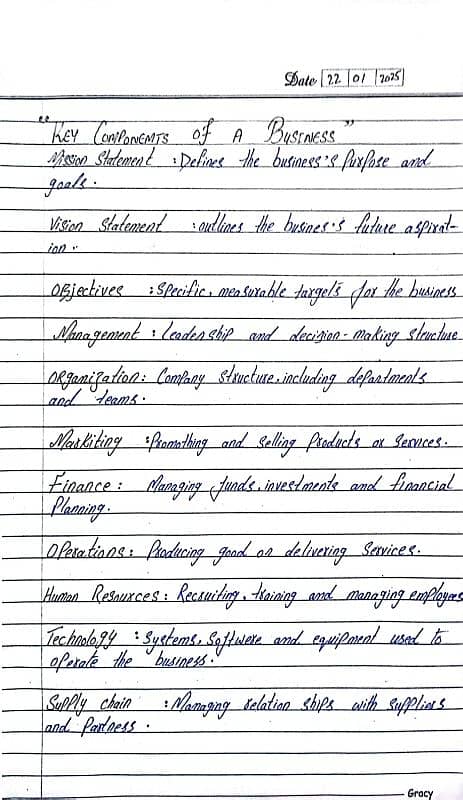 Date 22 01 2025
"Key Components of A Business"
Mission Statement : Defines the business's Purpose and
goals.
Vision Statement : outlines the busines's future aspirat-
ion.
Objectives : Specific, measurable targets for the business
Management : Leadership and decision-making structure
Organization: Company Structure, including departments
and teams.
Markiting : Promothing and Selling Products or Services.
Finance : Managing funds, investments and financial
Planning.
Operations: Producing good or delivering Services.
Human Resources : Recruiting, training and managing employees
Technology : Systems, Softwere and equipment used to
operate the business.
Supply chain : Managing relation ships with suppliers
and Partness.
Gracy